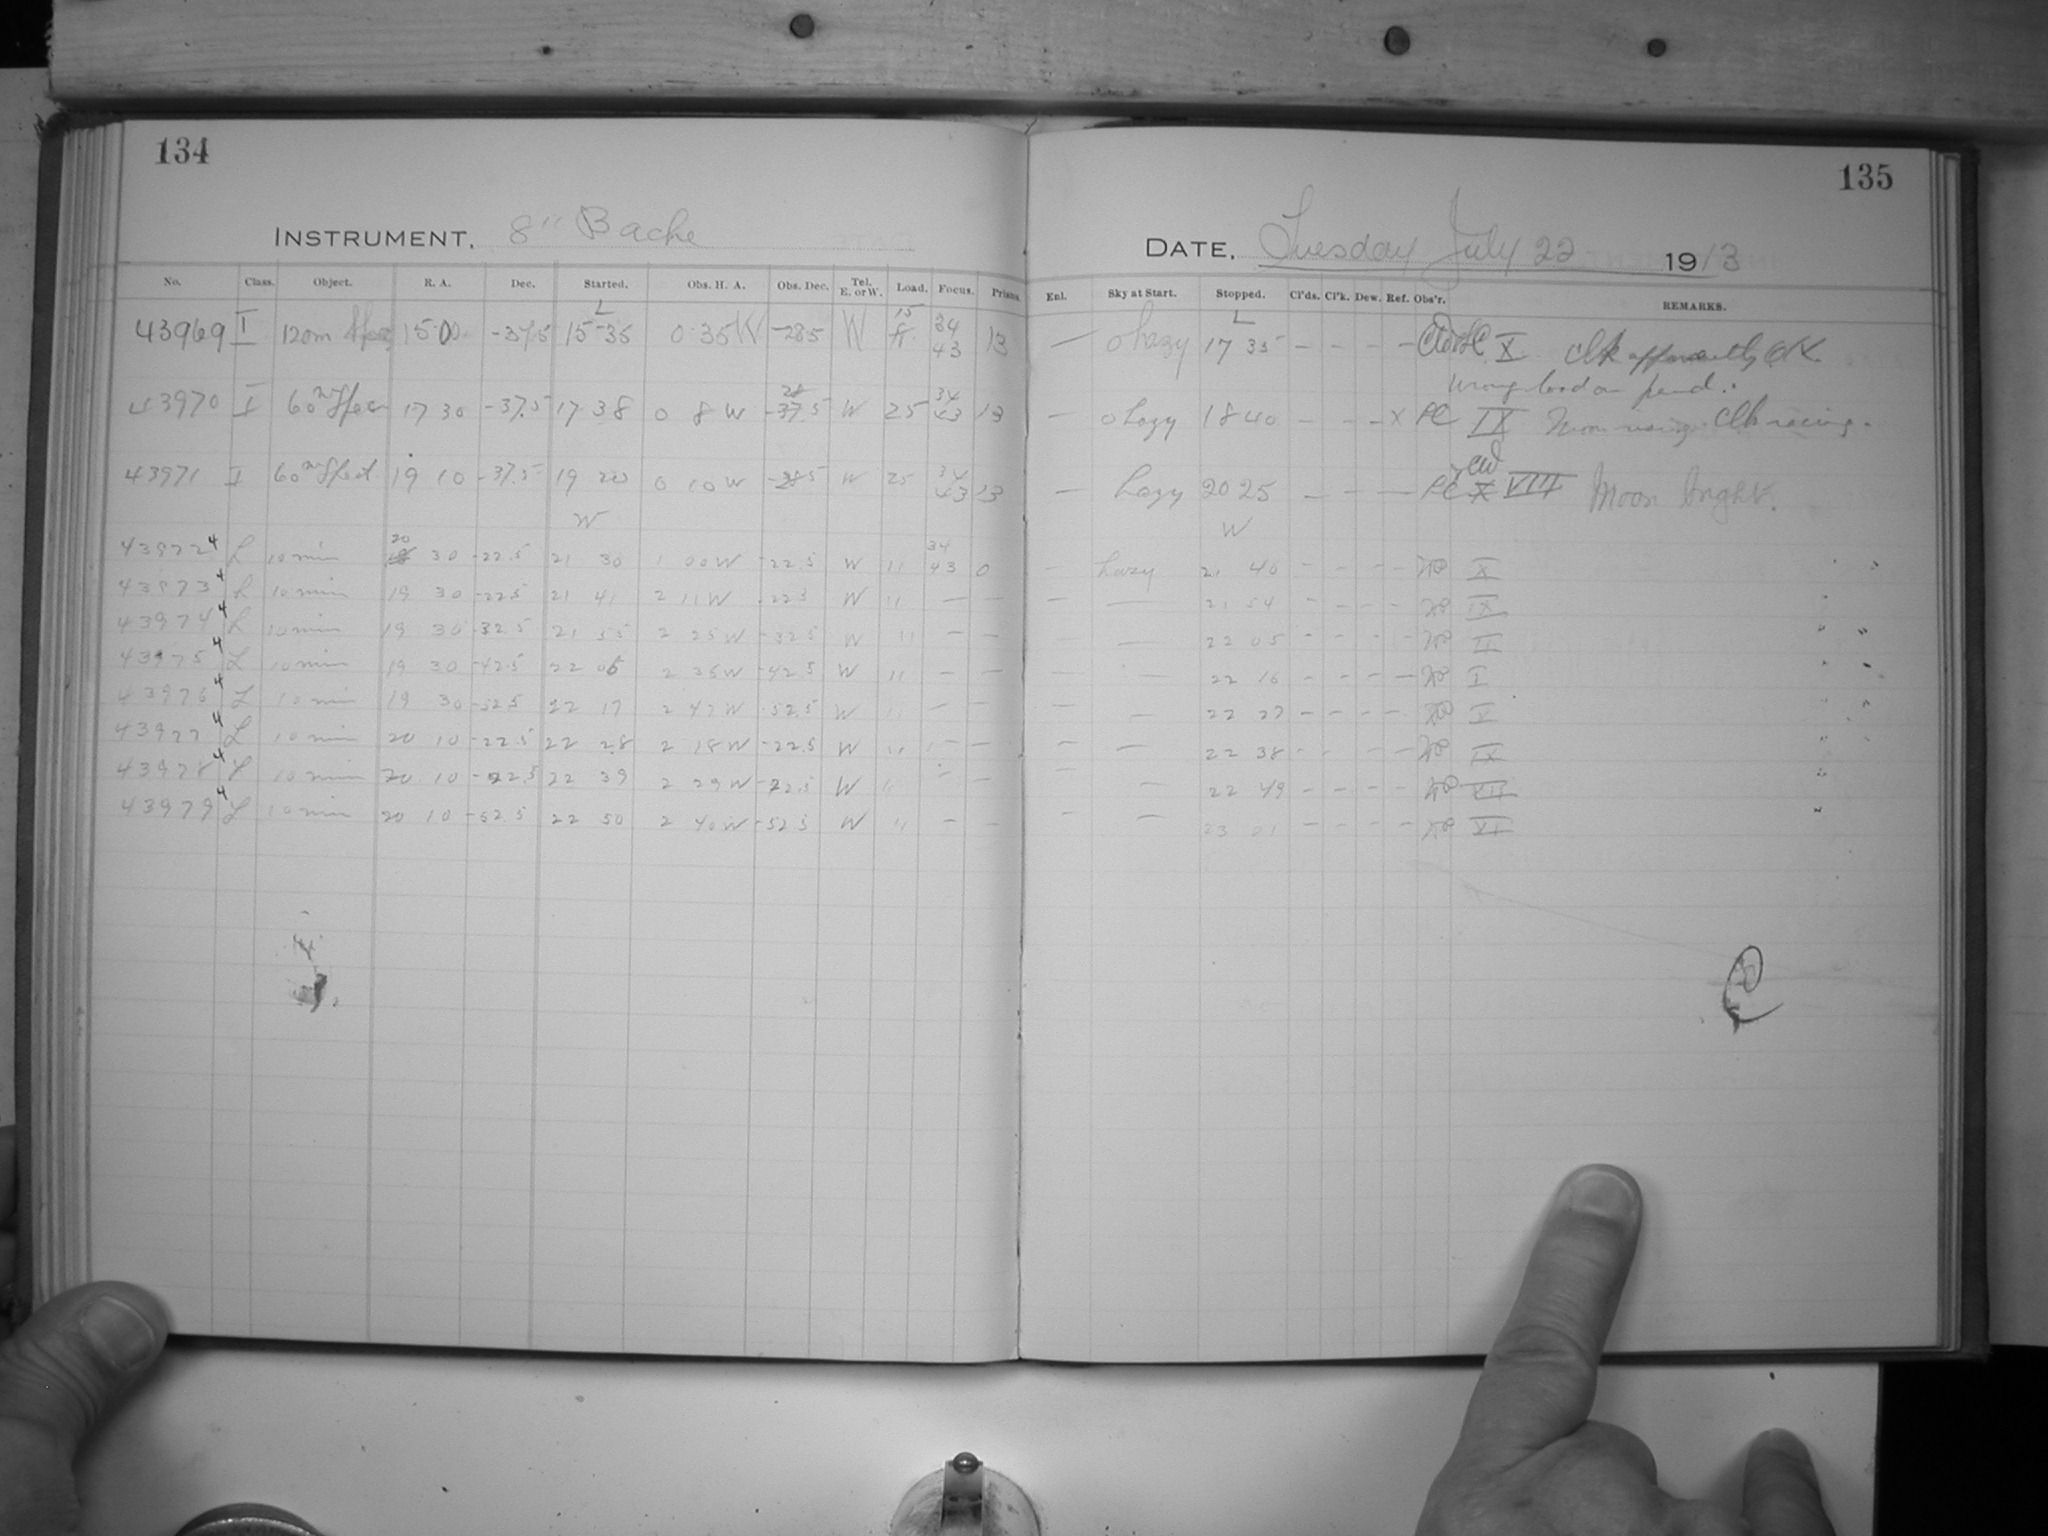 134
135
INSTRUMENT. 8" Bache
DATE. Tuesday July 22 1913
No. Class. Object. R. A. Dec. Started. Obs. H. A. Obs. Dec. Tel. E. or W. Load. Focus. Prisms. Enl. Sky at Start. Stopped. Cl'ds. Cl'k. Dew. Ref. Obs'r. REMARKS.
L L
43969 I 120m Spec 15 00 -37.5 15 35 0 35 W -28.5 W 15 34 43 13 — o hazy 17 35 - - - - X Clk apparently OK.
wrong load on pend.
43970 I 60m Spec 17 30 -37.5 17 38 0 8 W 28 -37.5 W 25 34 43 13 — o hazy 18 40 - - - X PC IX Moon rising. Clk racing.
43971 I 60m Spect. 19 10 -37.5 19 20 0 10 W W 25 34 43 13 — hazy 20 25 - - - - PC X VIII Moon bright.
W W
43972 4 L 10 min 20 30 -22.5 21 30 1 00 W -22.5 W 11 34 43 0 — hazy 21 40 - - - - X
43973 4 L 10 min 19 30 -22.5 21 41 2 11 W -22.5 W 11 — — — — 21 54 - - - - IX
43974 4 L 10 min 19 30 -32.5 21 55 2 25 W -32.5 W 11 — — — — 22 05 - - - - II
43975 4 L 10 min 19 30 -42.5 22 06 2 36 W -42.5 W 11 — — — — 22 16 - - - - I
43976 4 L 10 min 19 30 -52.5 22 17 2 47 W -52.5 W 11 — — — — 22 27 - - - - V
43977 4 L 10 min 20 10 -22.5 22 28 2 18 W -22.5 W 11 — — — — 22 38 - - - - IX
43978 4 L 10 min 20 10 22 39 2 29 W W 11 — — — — 22 49 - - - - VII
43979 4 L 10 min 20 10 -52.5 22 50 2 40 W -52.5 W 11 — — — — 23 01 - - - - VI